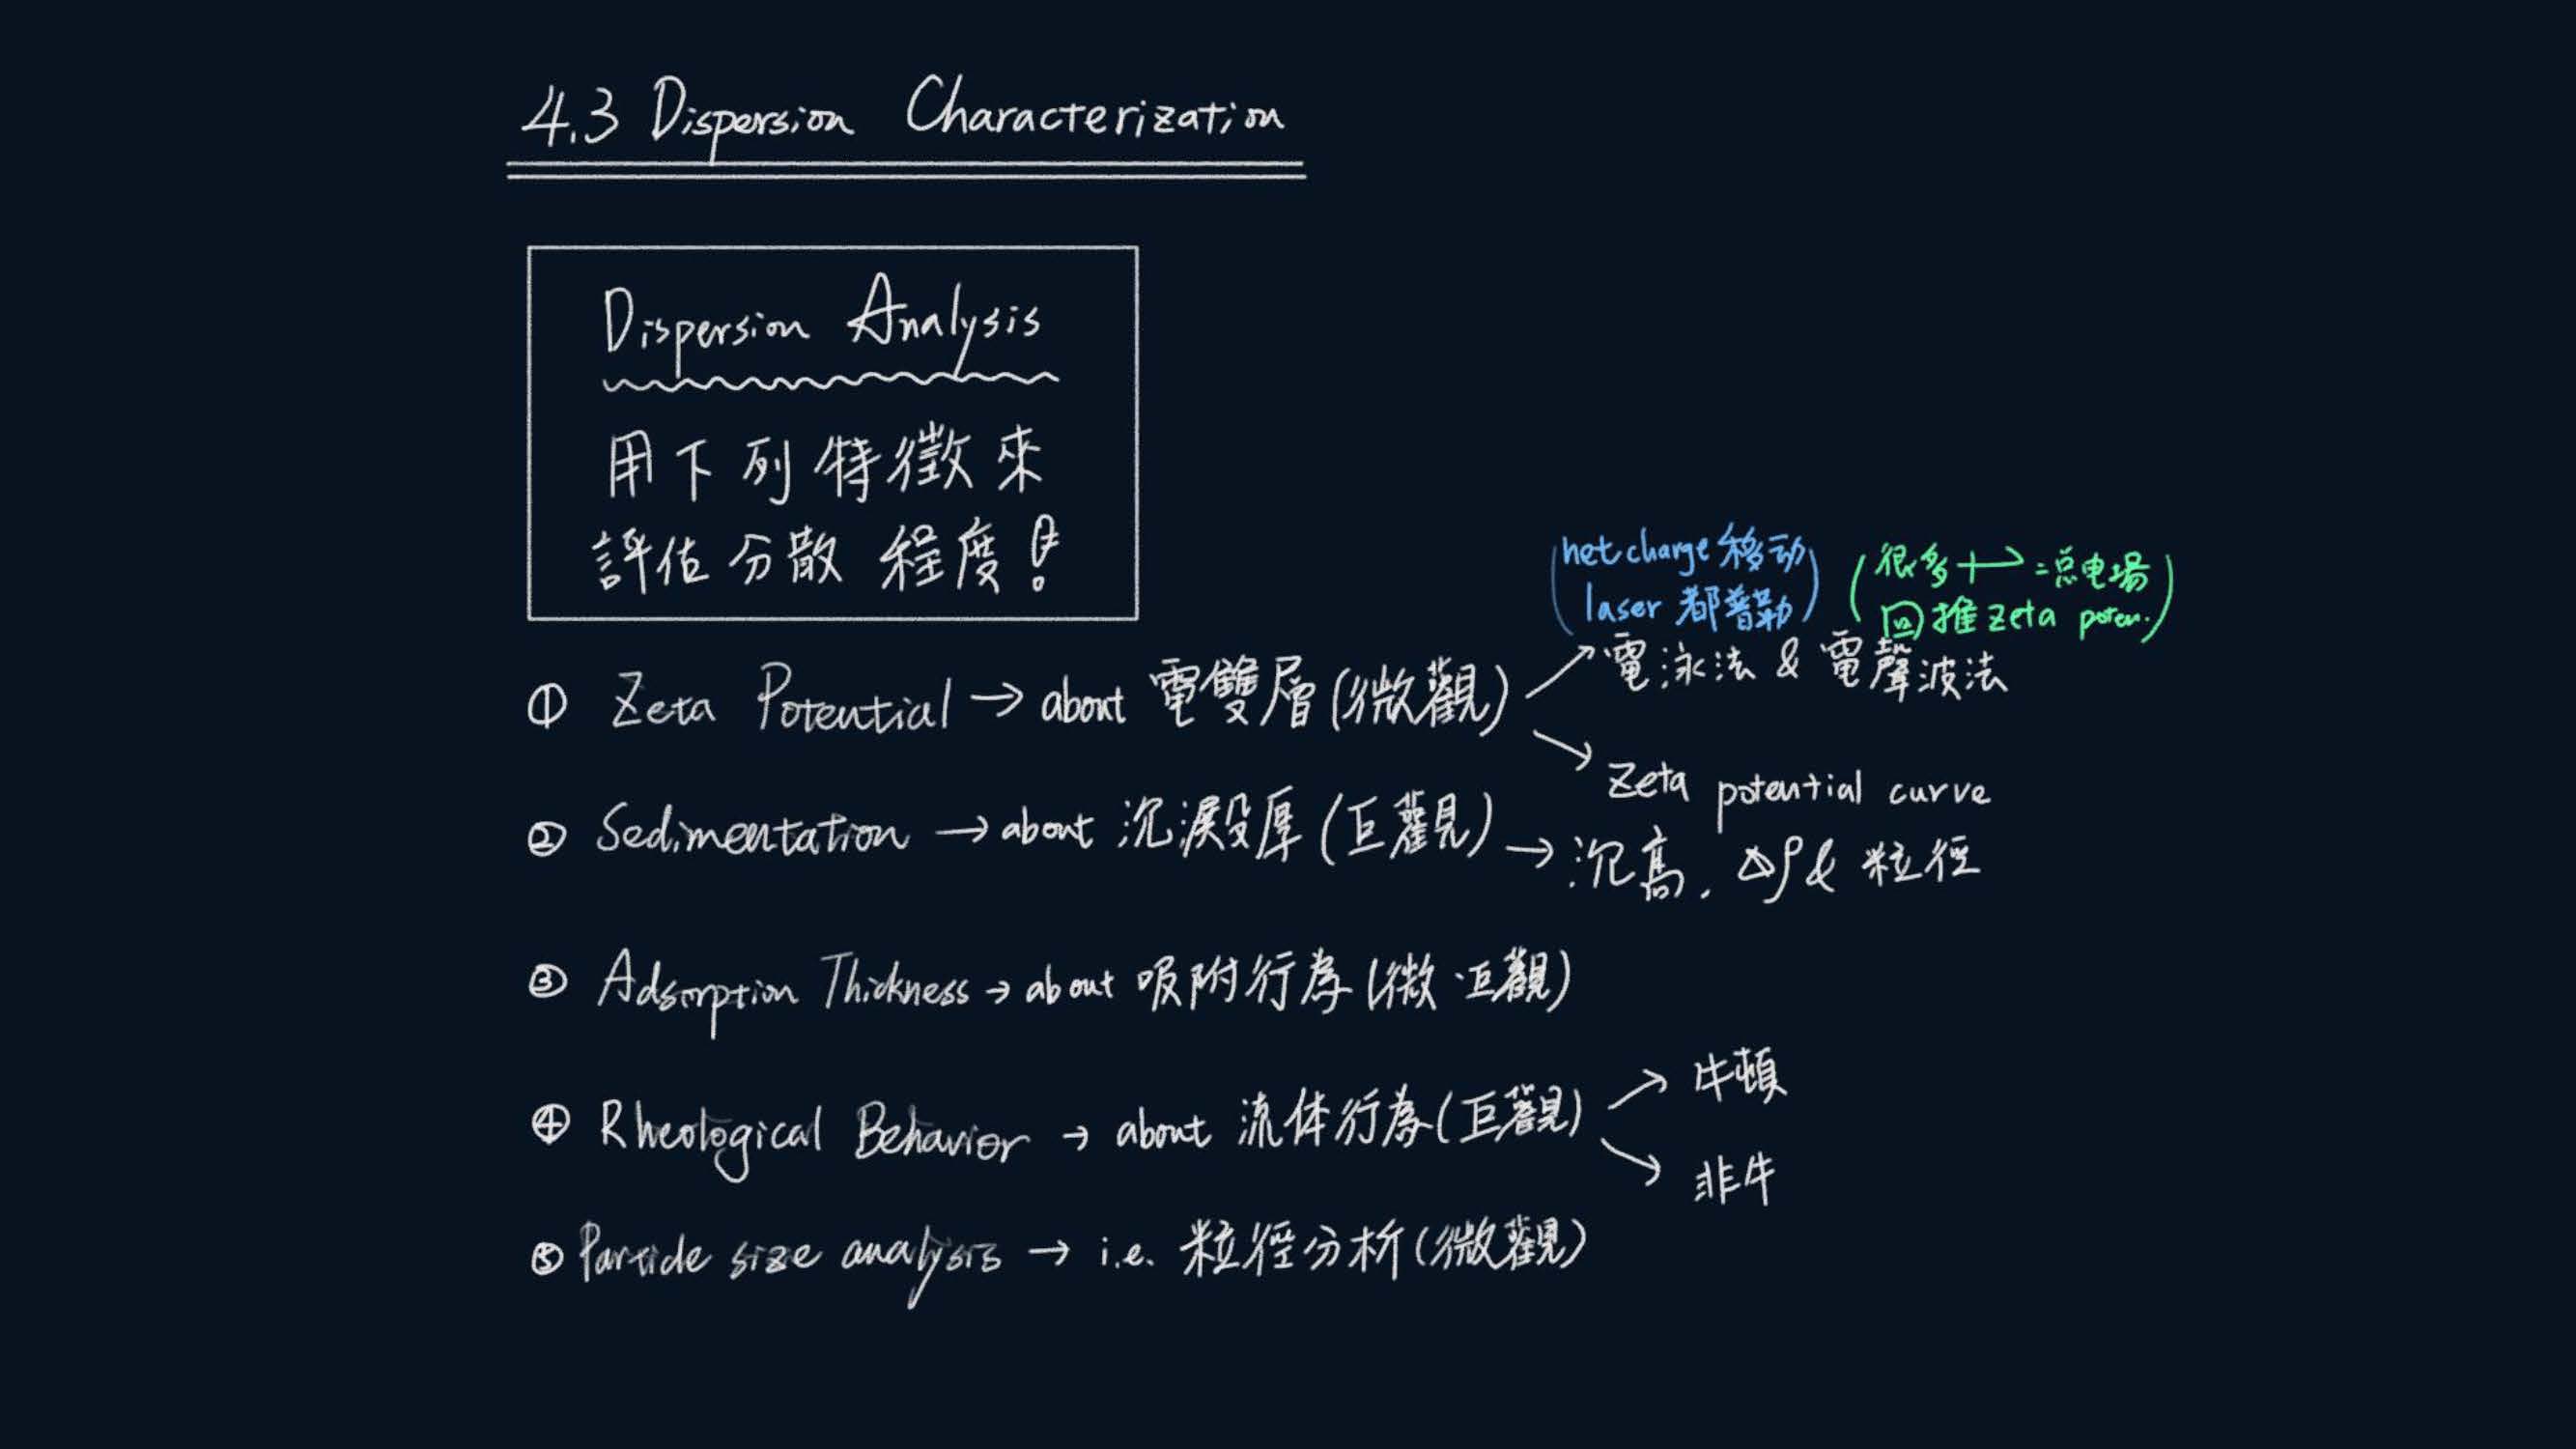 4.3 Dispersion Characterization
Dispersion Analysis
用下列特徵來
評估分散程度!
(net charge 移动
laser 都普勒)
(很多 +→ = 总电場
回推 zeta poten.)
① Zeta Potential → about 電雙層(微觀)
↗ 電泳法 & 電聲波法
↘ Zeta potential curve
② Sedimentation → about 沉澱厚(巨觀) → 沉高, Δρ & 粒徑
③ Adsorption Thickness → about 吸附行為(微·巨觀)
④ Rheological Behavior → about 流体行為(巨觀)
↗ 牛頓
↘ 非牛
⑤ Particle size analysis → i.e. 粒徑分析(微觀)